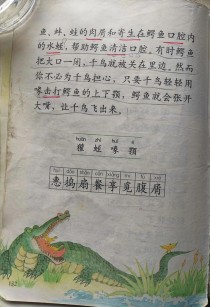 鱼、蚌、蛙的肉屑和寄生在鳄鱼口腔内
的水蛭，帮助鳄鱼清洁口腔。有时鳄鱼
把大口一闭，千鸟就被关在里边。然而
你不必为千鸟担心，只要千鸟轻轻用
喙击打鳄鱼的上下颚，鳄鱼就会张开
大嘴，让千鸟飞出来。
huān zhì huì è
獾 蛭 喙 颚
憩 捣 扇 餐 享 宽 腹 屑